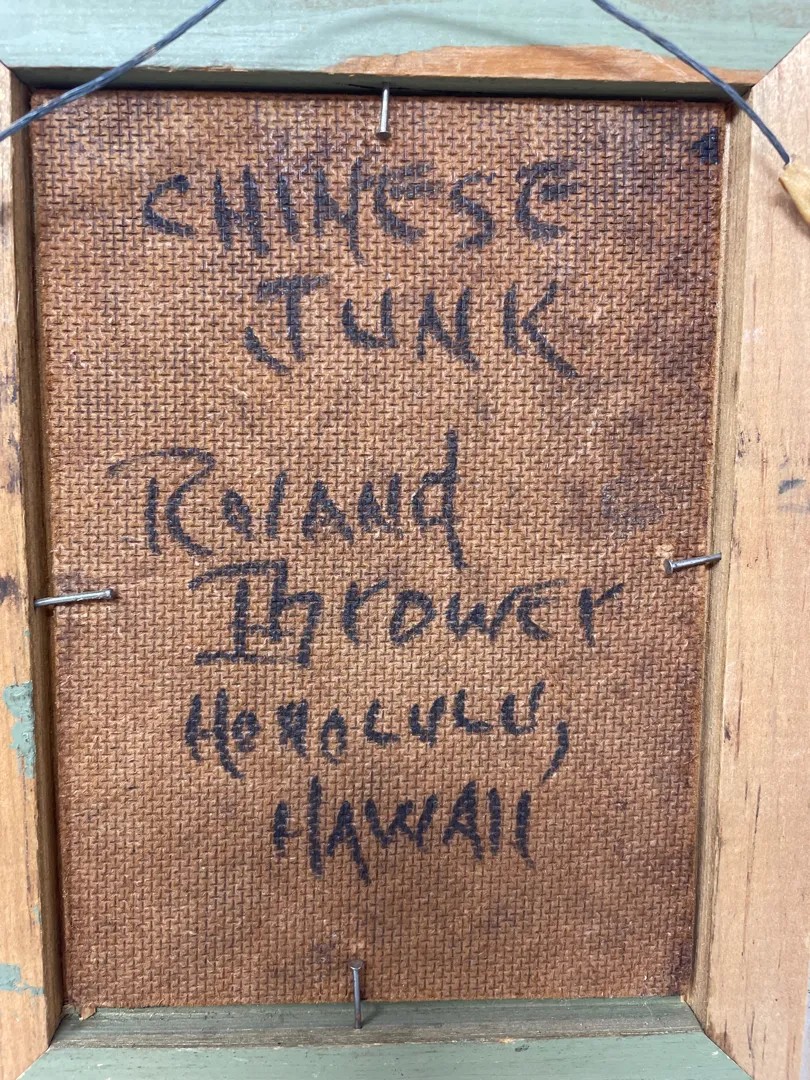 CHINESE
JUNK
Roland
Thrower
HONOLULU,
HAWAII